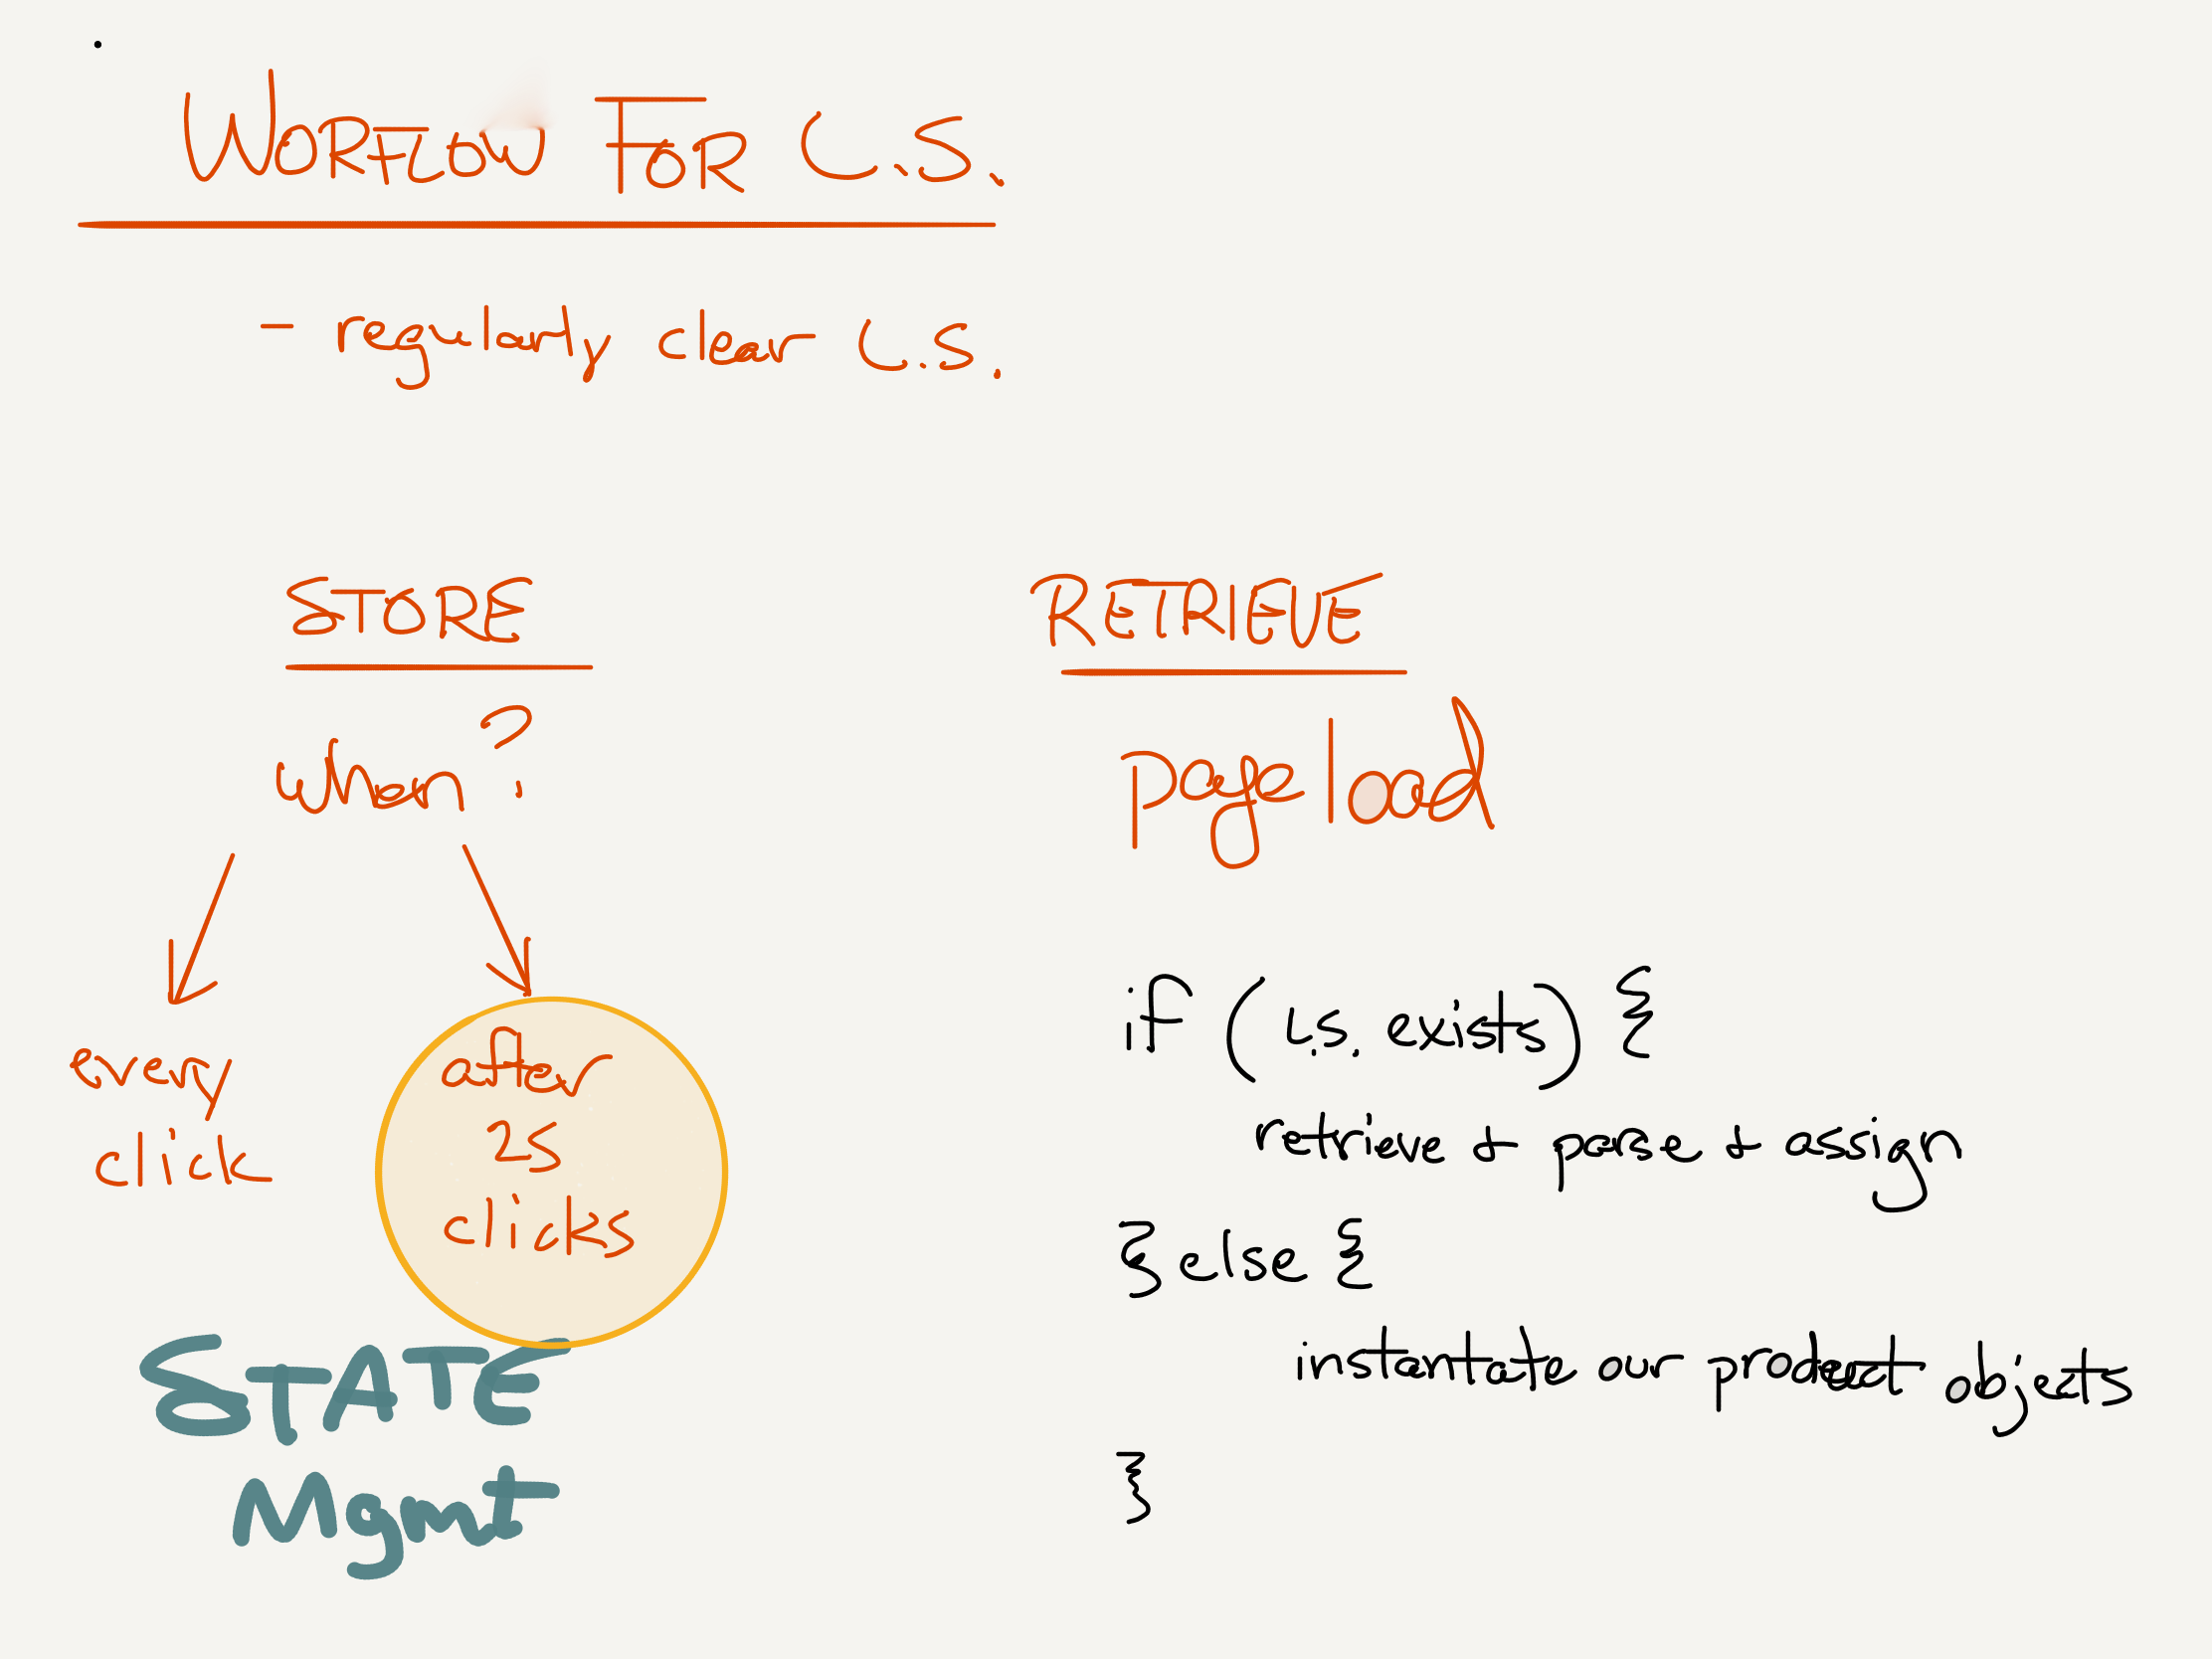 WORFLOW FOR L.S.
- regularly clear L.S.
STORE
when?
every
click
after
25
clicks
STATE
Mgmt
RETRIEVE
page load
if (L.S. exists) {
retrieve + parse + assign
} else {
instantate our product objects
}